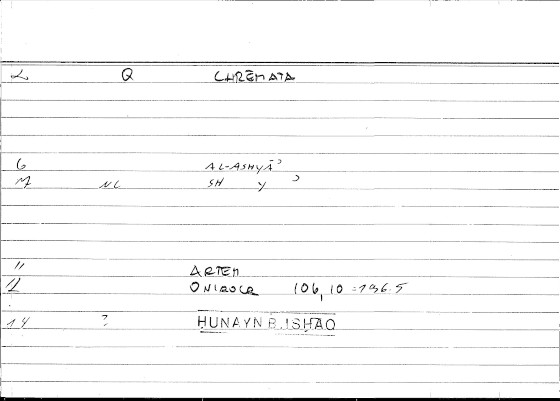 2 Q CHRĒMATA
6 AL-ASHYĀʾ
7 NC SH Y ʾ
" ARTEM
12 ONIROCR 106,10 = 196.5
14 ? HUNAYN B. ISHAQ